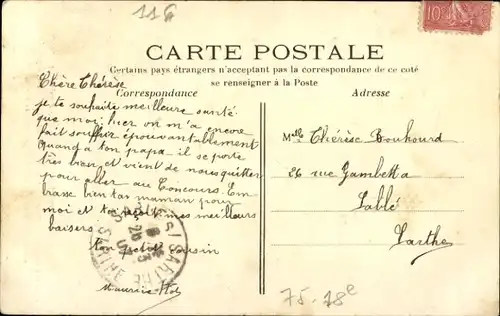 116
10
CARTE POSTALE
Certains pays étrangers n'acceptant pas la correspondance de ce coté
se renseigner à la Poste
Correspondance
Adresse
Chère Thérèse
je te souhaite meilleure santé
que moi; hier on m'a encore
fait souffrir épouvantablement
Quand a ton papa il se porte
très bien, et vient de nous quitter
pour aller au Concours. Em-
brasse bien ta maman pour
moi et toi mes meilleurs
baisers.
ton petit cousin
Maurice
Melle Thérèse Bouhourd
26 rue Gambetta
Sablé
Sarthe
SARTHE
75-18e